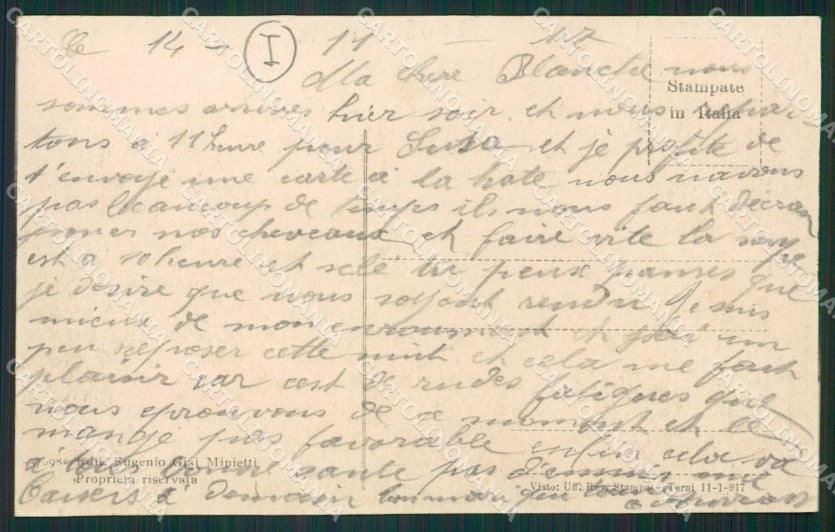 le 14 - 11 - 17
I
Ma chere Blanche nous
Stampate
in Italia
sommes arrives hier soir et nous repar-
tons a 11 heure pour Susa et je profite de
t'envoye une carte a la hate nous navons
pas beaucoup de temps il nous faut decram
poner nos cheveaux et faire vite la soupe
est a 10 heure et sele tu peux panser que
je desire que nous soyont rendu Je suis
mieux de mon enroument et jai un
peu reposer cette nuit et cela me fait
plaisir car cest de rudes fatigues que
nous eprouvons de ce moment et le
mange pas favorable enfin cela va
a bonne sante pas d'ennuis mil
Baisers a Demain ton mari qui
984 Ediz. Eugenio Giai Minietti
Proprietà riservata
Visto: Uff. Rev. Stampa - Terni 11-1-917
CARTOLINOMANIA